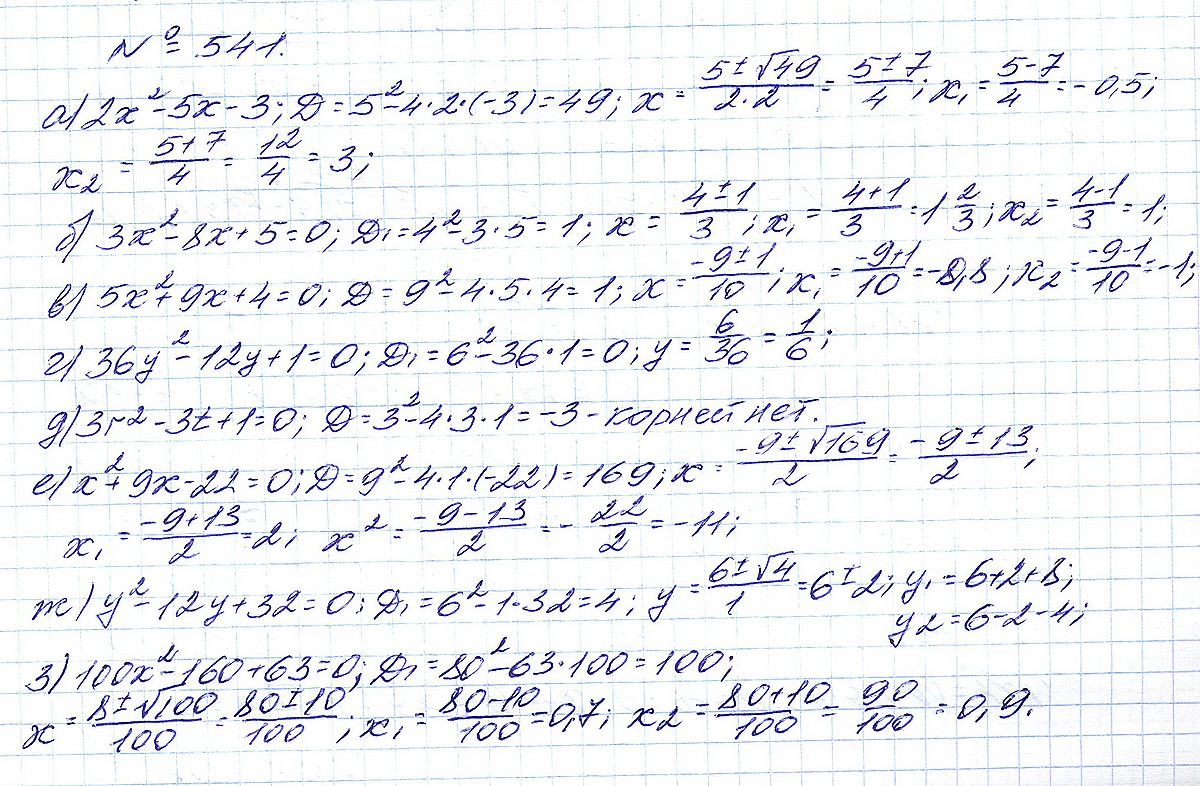 № 541.
а) 2x² - 5x - 3; D = 5² - 4·2·(-3) = 49; x = (5 ± √49)/(2·2) = (5 ± 7)/4; x₁ = (5 - 7)/4 = -0,5;
x₂ = (5 + 7)/4 = 12/4 = 3;
б) 3x² - 8x + 5 = 0; D₁ = 4² - 3·5 = 1; x = (4 ± 1)/3; x₁ = (4 + 1)/3 = 1 2/3; x₂ = (4 - 1)/3 = 1;
в) 5x² + 9x + 4 = 0; D = 9² - 4·5·4 = 1; x = (-9 ± 1)/10; x₁ = (-9 + 1)/10 = -0,8; x₂ = (-9 - 1)/10 = -1;
г) 36y² - 12y + 1 = 0; D₁ = 6² - 36·1 = 0; y = 6/36 = 1/6;
д) 3t² - 3t + 1 = 0; D = 3² - 4·3·1 = -3 - корней нет.
е) x² + 9x - 22 = 0; D = 9² - 4·1·(-22) = 169; x = (-9 ± √169)/2 = (-9 ± 13)/2;
x₁ = (-9 + 13)/2 = 2; x² = (-9 - 13)/2 = -22/2 = -11;
ж) y² - 12y + 32 = 0; D₁ = 6² - 1·32 = 4; y = (6 ± √4)/1 = 6 ± 2; y₁ = 6 + 2 + 8;
y₂ = 6 - 2 - 4;
з) 100x² - 160 + 63 = 0; D₁ = 80² - 63·100 = 100;
x = (8 ± √100)/100 = (80 ± 10)/100; x₁ = (80 - 10)/100 = 0,7; x₂ = (80 + 10)/100 = 90/100 = 0,9.